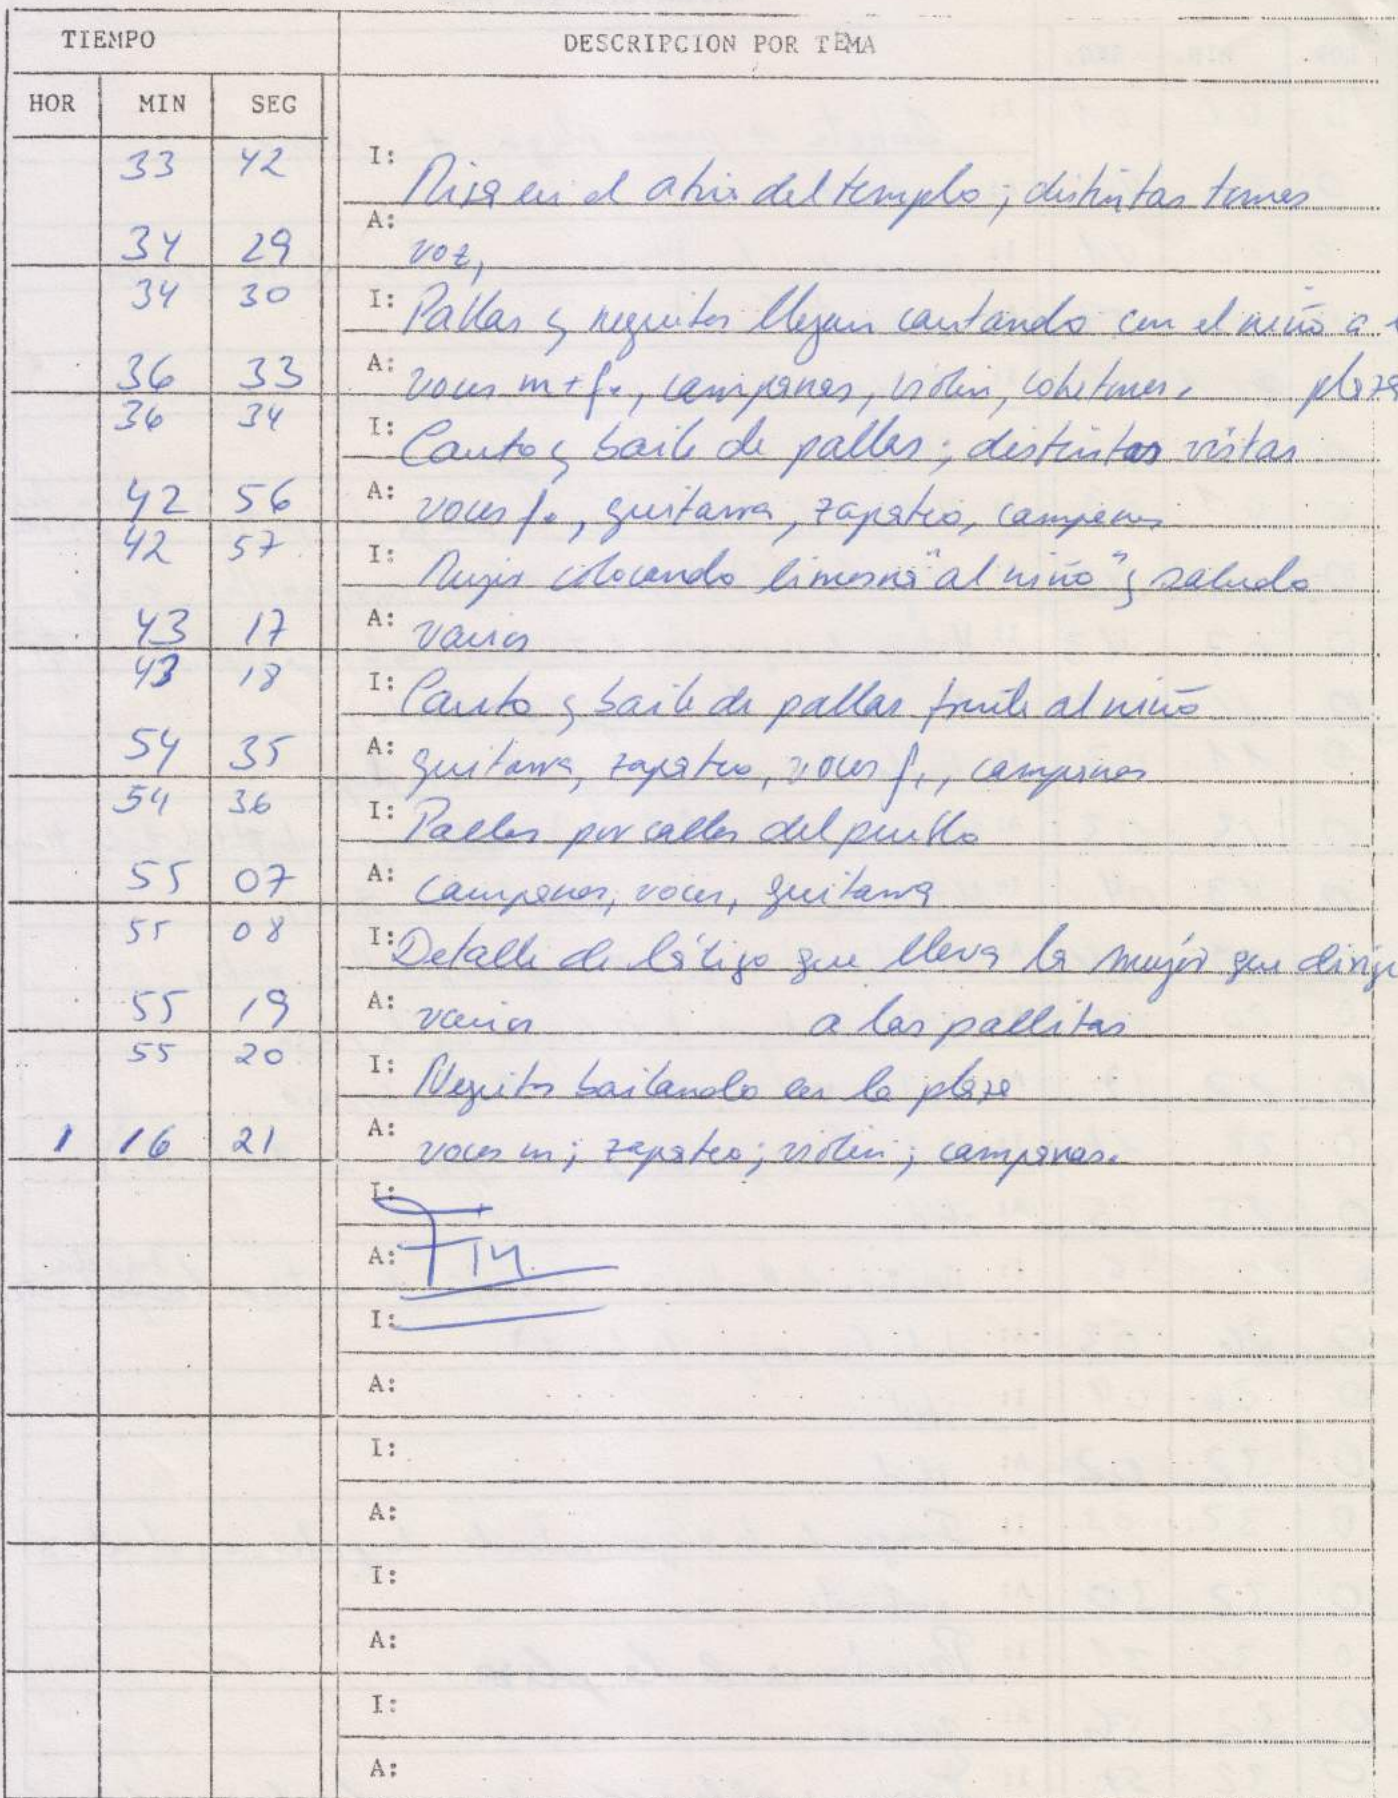 TIEMPO DESCRIPCION POR TEMA
HOR MIN SEG
33 42 I: Misa en el atrio del templo; distintas tomas
34 29 A: voz,
34 30 I: Pallas y negritos llegan cantando con el niño a
36 33 A: voces m+f., campanas, violin, cohetones. plaza
36 34 I: Canto y baile de pallas; distintas vistas
42 56 A: voces f., guitarra, zapateo, campanas
42 57 I: Mujer colocando limosna "al niño" y saludo
43 17 A: varios
43 18 I: Canto y baile de pallas frente al niño
54 35 A: guitarra, zapateo, voces f., campanas
54 36 I: Pallas por calles del pueblo
55 07 A: campanas, voces, guitarra
55 08 I: Detalle de látigo que lleva la mujer que dirige
55 19 A: varios a las pallitas
55 20 I: Negritos bailando en la plaza
1 16 21 A: voces m; zapateo; violin; campanas.
I:
A: Fin
I:
A:
I:
A:
I:
A:
I:
A: